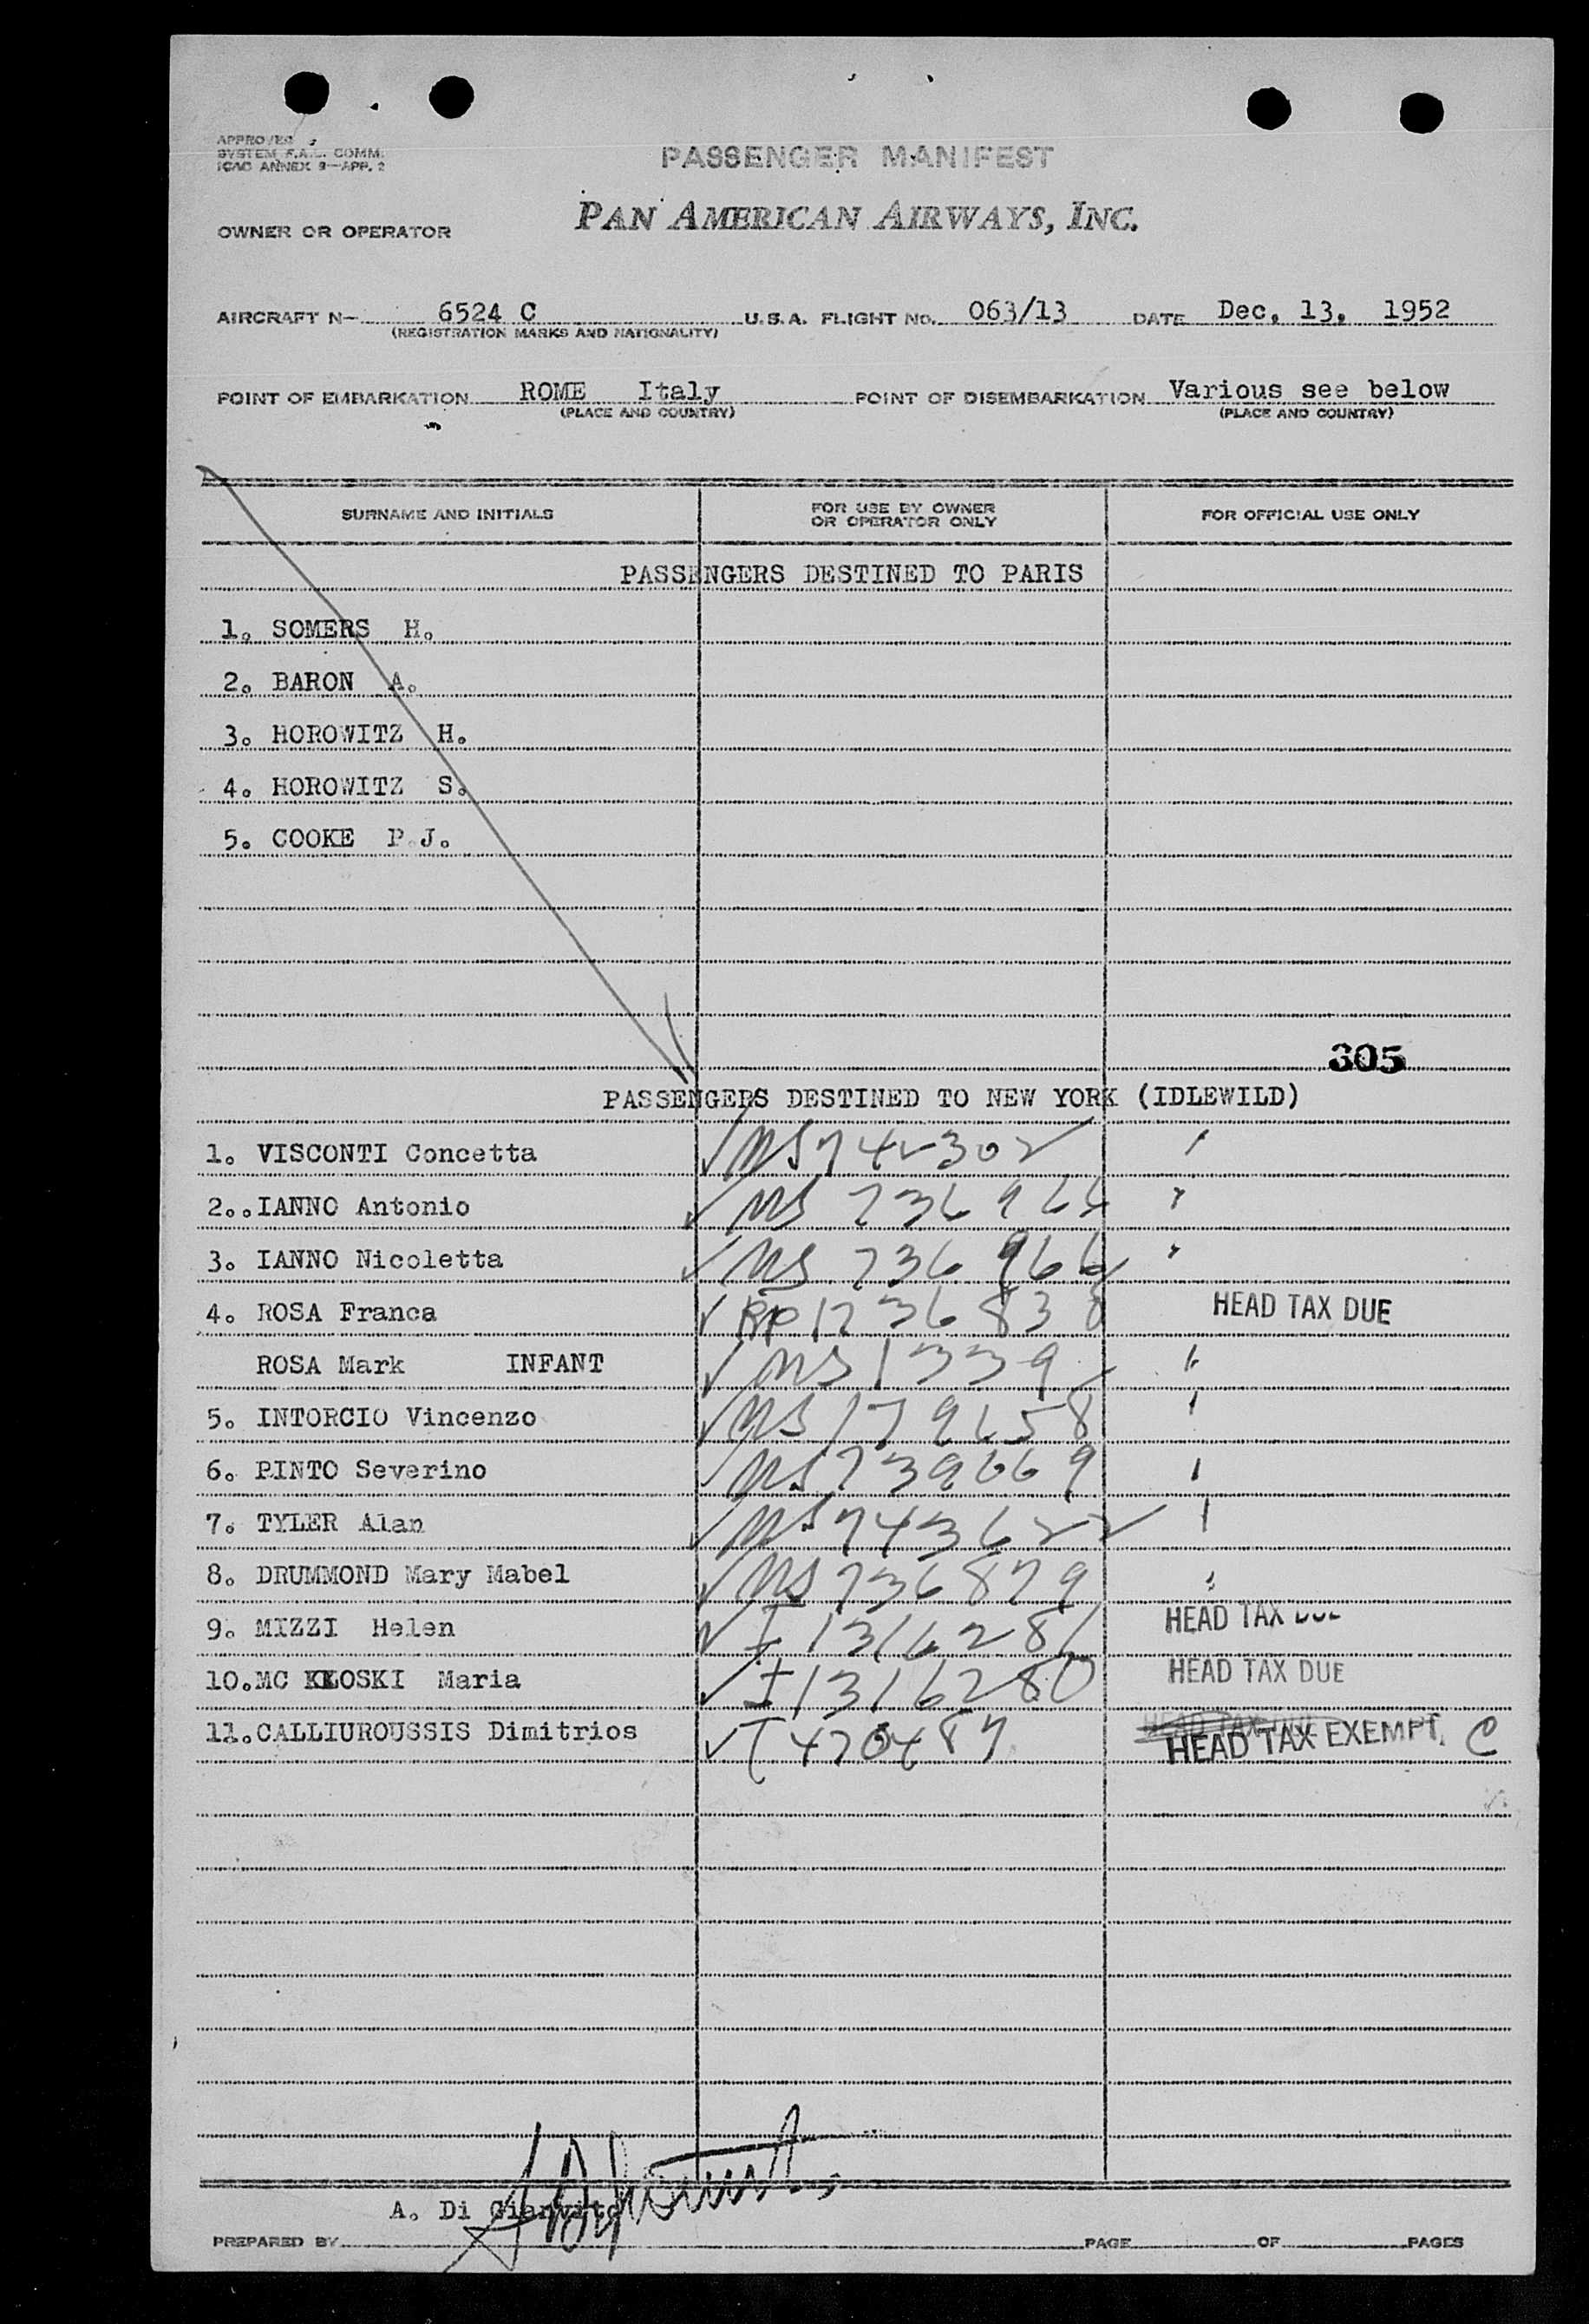 APPROVED
SYSTEM F.A.L. COMM.
ICAO ANNEX 9—APP. 2
PASSENGER MANIFEST
OWNER OR OPERATOR PAN AMERICAN AIRWAYS, INC.
AIRCRAFT N— 6524 C U.S.A. FLIGHT NO. 063/13 DATE Dec, 13, 1952
(REGISTRATION MARKS AND NATIONALITY)
POINT OF EMBARKATION ROME Italy POINT OF DISEMBARKATION Various see below
(PLACE AND COUNTRY) (PLACE AND COUNTRY)
SURNAME AND INITIALS FOR USE BY OWNER OR OPERATOR ONLY FOR OFFICIAL USE ONLY
PASSENGERS DESTINED TO PARIS
1. SOMERS H.
2. BARON A.
3. HOROWITZ H.
4. HOROWITZ S.
5. COOKE P.J.
305
PASSENGERS DESTINED TO NEW YORK (IDLEWILD)
1. VISCONTI Concetta ✓ NS 742302
2..IANNO Antonio ✓ NS 736965
3. IANNO Nicoletta ✓ NS 736966
4. ROSA Franca ✓ RP 1236838 HEAD TAX DUE
ROSA Mark INFANT ✓ NS 1339
5. INTORCIO Vincenzo ✓ NS 179658
6. PINTO Severino ✓ NS 739669
7. TYLER Alan ✓ NS 743622
8. DRUMMOND Mary Mabel ✓ NS 736879
9. MIZZI Helen ✓ I 1316281 HEAD TAX DUE
10.MC KLOSKI Maria ✓ I 1316280 HEAD TAX DUE
11.CALLIUROUSSIS Dimitrios ✓ T 470487 HEAD TAX EXEMPT. C
A. Di Gianvito
PREPARED BY PAGE OF PAGES